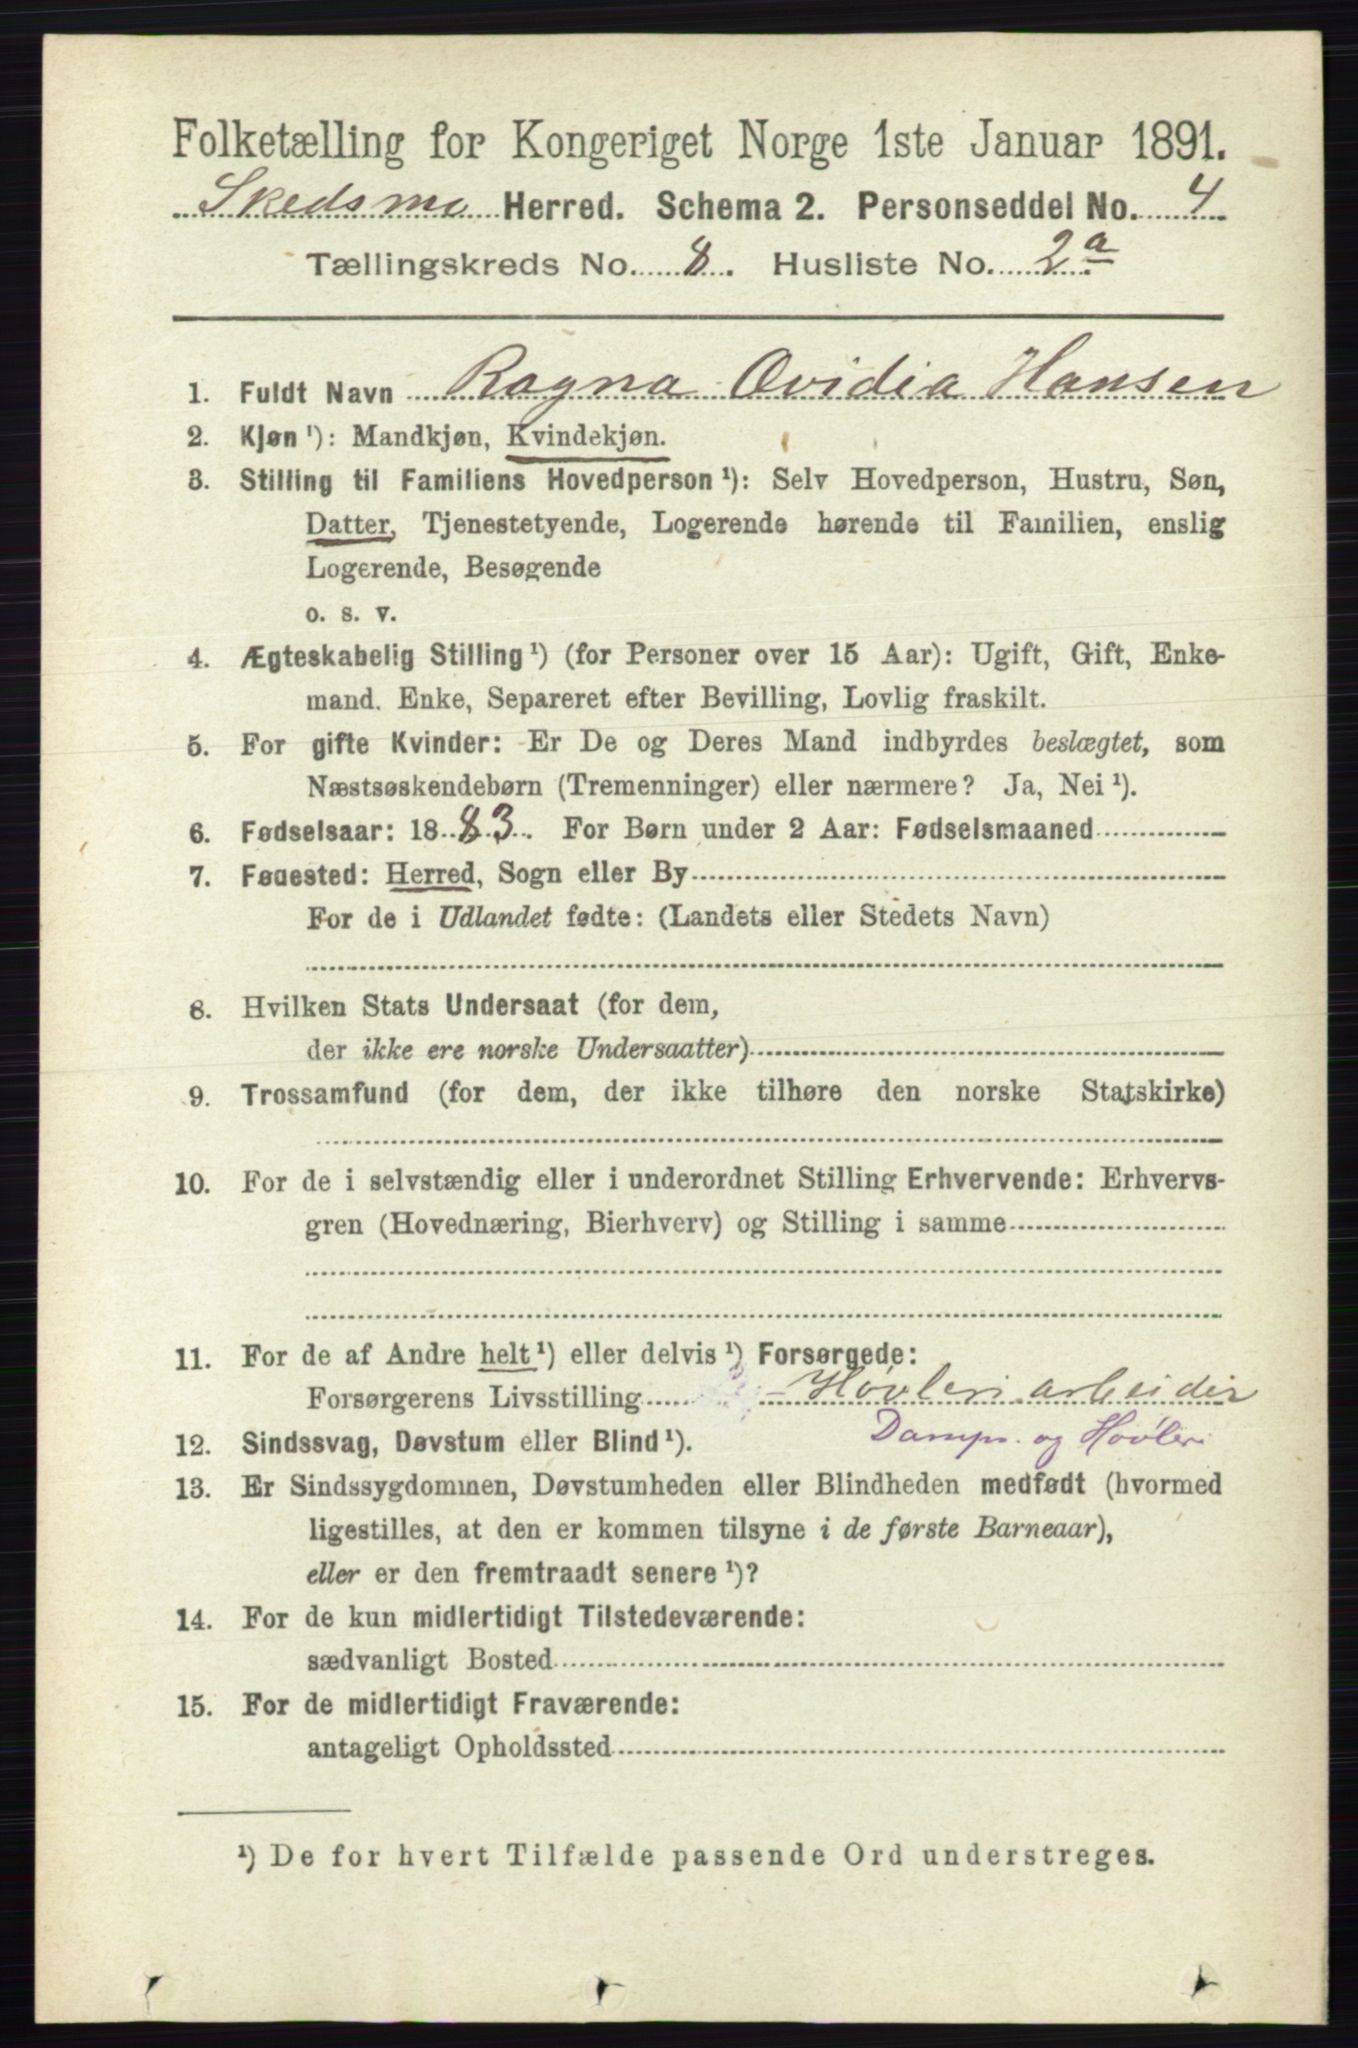 Folketælling for Kongeriget Norge 1ste Januar 1891.
Skedsmo Herred. Schema 2. Personseddel No. 4
Tællingskreds No. 8. Husliste No. 2a
1. Fuldt Navn Ragna Ovidia Hansen
2. Kjøn ¹): Mandkjøn, Kvindekjøn.
3. Stilling til Familiens Hovedperson ¹): Selv Hovedperson, Hustru, Søn,
Datter, Tjenestetyende, Logerende hørende til Familien, enslig
Logerende, Besøgende
o. s. v.
4. Ægteskabelig Stilling ¹) (for Personer over 15 Aar): Ugift, Gift, Enke-
mand. Enke, Separeret efter Bevilling, Lovlig fraskilt.
5. For gifte Kvinder: Er De og Deres Mand indbyrdes beslægtet, som
Næstsøskendebørn (Tremenninger) eller nærmere? Ja, Nei ¹).
6. Fødselsaar: 1883. For Børn under 2 Aar: Fødselsmaaned
7. Fødested: Herred, Sogn eller By
For de i Udlandet fødte: (Landets eller Stedets Navn)
8. Hvilken Stats Undersaat (for dem,
der ikke ere norske Undersaatter)
9. Trossamfund (for dem, der ikke tilhøre den norske Statskirke)
10. For de i selvstændig eller i underordnet Stilling Erhvervende: Erhvervs-
gren (Hovednæring, Bierhverv) og Stilling i samme
11. For de af Andre helt ¹) eller delvis ¹) Forsørgede:
Forsørgerens Livsstilling Høvleriarbeider
Dampn. og Høvleri
12. Sindssvag, Døvstum eller Blind ¹).
13. Er Sindssygdommen, Døvstumheden eller Blindheden medfødt (hvormed
ligestilles, at den er kommen tilsyne i de første Barneaar),
eller er den fremtraadt senere ¹)?
14. For de kun midlertidigt Tilstedeværende:
sædvanligt Bosted
15. For de midlertidigt Fraværende:
antageligt Opholdssted
¹) De for hvert Tilfælde passende Ord understreges.